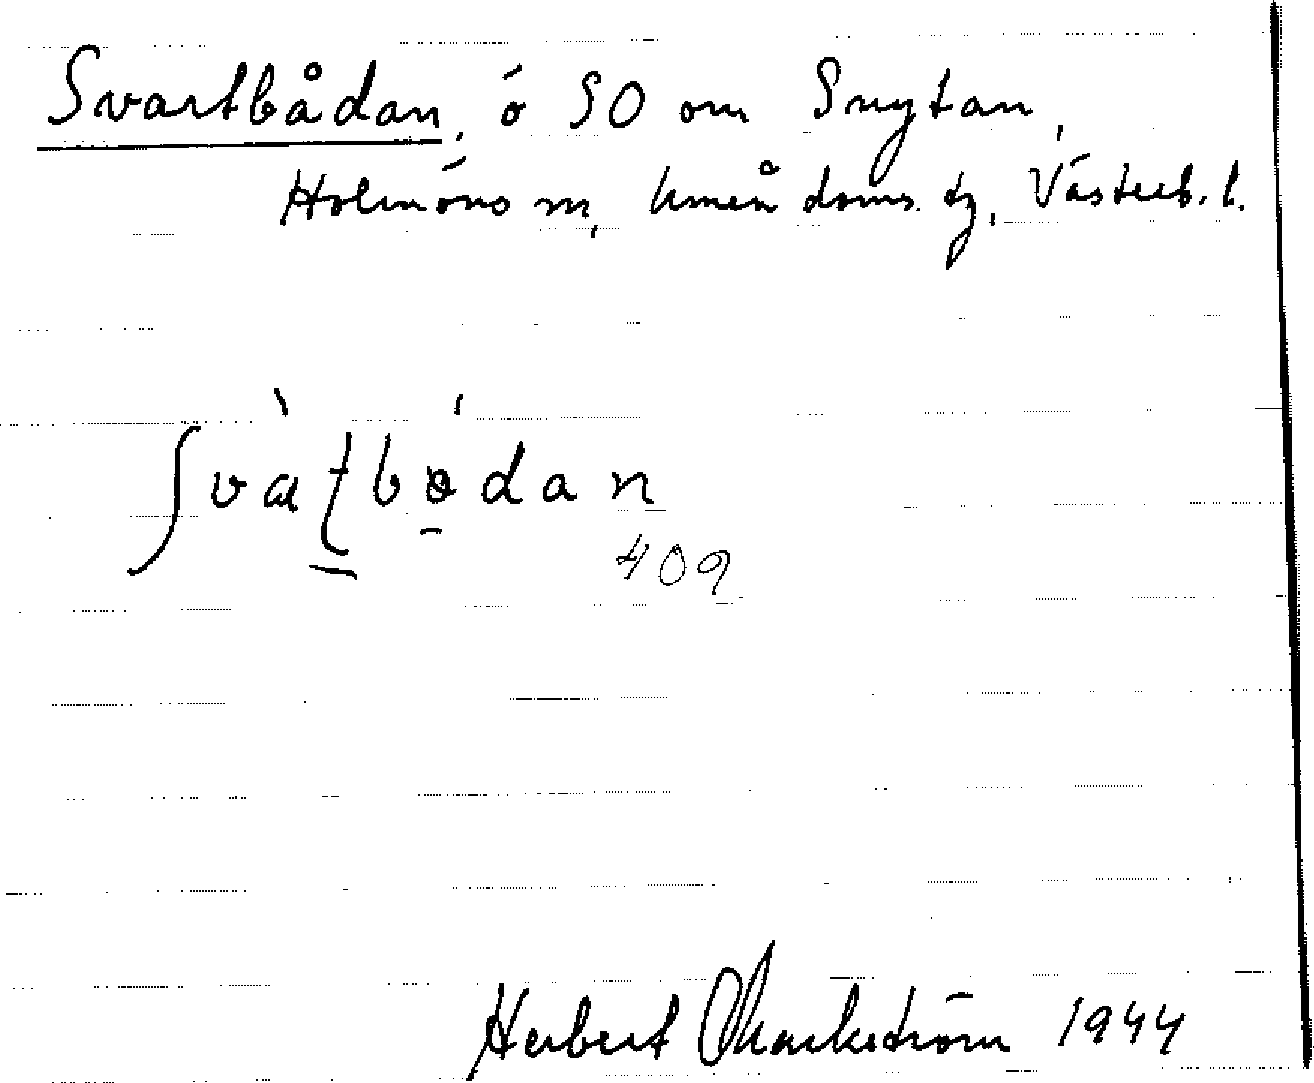 Svartbådan, ö SO om Snytan,
Holmöns sn, Umeå doms. tg, Västerb. l.
Svatbådan
409
Herbert Markström 1944